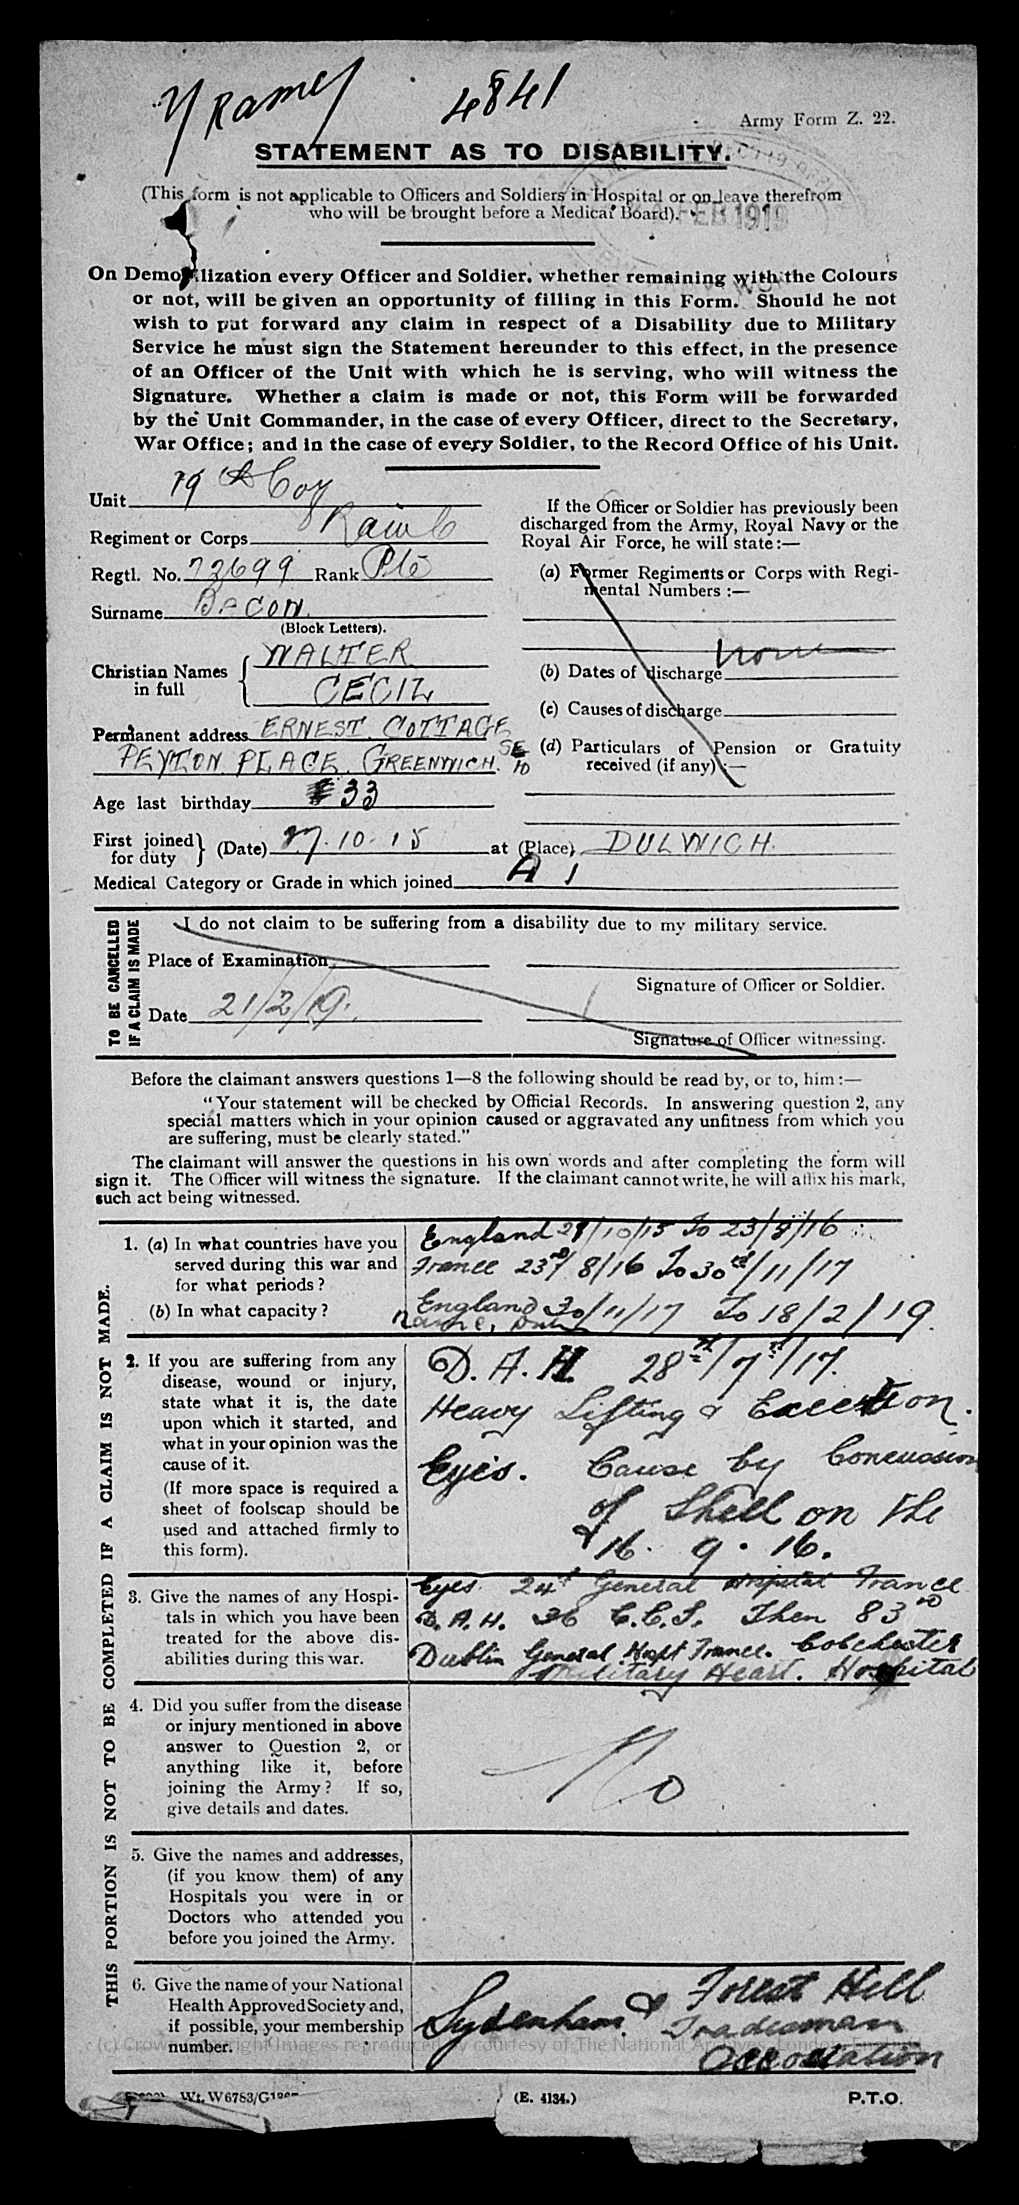 4841
Army Form Z. 22.
STATEMENT AS TO DISABILITY.
(This form is not applicable to Officers and Soldiers in Hospital or on leave therefrom
who will be brought before a Medical Board).
FEB 1919
On Demobilization every Officer and Soldier, whether remaining with the Colours
or not, will be given an opportunity of filling in this Form. Should he not
wish to put forward any claim in respect of a Disability due to Military
Service he must sign the Statement hereunder to this effect, in the presence
of an Officer of the Unit with which he is serving, who will witness the
Signature. Whether a claim is made or not, this Form will be forwarded
by the Unit Commander, in the case of every Officer, direct to the Secretary,
War Office; and in the case of every Soldier, to the Record Office of his Unit.
Unit 19 Coy
Regiment or Corps RAMC
Regtl. No. 73699 Rank Pte
Surname BACON
(Block Letters).
Christian Names in full WALTER
CECIL
Permanent address ERNEST COTTAGE
PEYTON PLACE. GREENWICH. SE 10
Age last birthday 33
If the Officer or Soldier has previously been
discharged from the Army, Royal Navy or the
Royal Air Force, he will state:—
(a) Former Regiments or Corps with Regi-
mental Numbers :—
none
(b) Dates of discharge
(c) Causes of discharge
(d) Particulars of Pension or Gratuity
received (if any) :—
First joined for duty } (Date) 27.10.15 at (Place) DULWICH.
Medical Category or Grade in which joined A 1
TO BE CANCELLED
IF A CLAIM IS MADE
I do not claim to be suffering from a disability due to my military service.
Place of Examination
Signature of Officer or Soldier.
Date 21/2/19.
Signature of Officer witnessing.
Before the claimant answers questions 1—8 the following should be read by, or to, him :—
"Your statement will be checked by Official Records. In answering question 2, any
special matters which in your opinion caused or aggravated any unfitness from which you
are suffering, must be clearly stated."
The claimant will answer the questions in his own words and after completing the form will
sign it. The Officer will witness the signature. If the claimant cannot write, he will affix his mark,
such act being witnessed.
THIS PORTION IS NOT TO BE COMPLETED IF A CLAIM IS NOT MADE.
1. (a) In what countries have you
served during this war and
for what periods?
(b) In what capacity?
England 27/10/15 To 23/8/16
France 23rd/8/16 To 30th/11/17
England 30/11/17 To 18/2/19.
2. If you are suffering from any
disease, wound or injury,
state what it is, the date
upon which it started, and
what in your opinion was the
cause of it.
(If more space is required a
sheet of foolscap should be
used and attached firmly to
this form).
D. A. H. 28th/7th/17.
Heavy Lifting & Exertion.
Eyes. Cause by Concussion
of Shell on the
16. 9. 16.
3. Give the names of any Hospi-
tals in which you have been
treated for the above dis-
abilities during this war.
Eyes. 24th General Hospital France
D.A.H. 36 C.C.S. Then 83rd
Dublin General Hospt France. Colchester
Military Heart. Hospital
4. Did you suffer from the disease
or injury mentioned in above
answer to Question 2, or
anything like it, before
joining the Army? If so,
give details and dates.
No
5. Give the names and addresses,
(if you know them) of any
Hospitals you were in or
Doctors who attended you
before you joined the Army.
6. Give the name of your National
Health Approved Society and,
if possible, your membership
number.
Sydenham & Forest Hill
Tradesman
Association
(c) Crown Copyright Images reproduced by courtesy of The National Archives, London, England
Wt. W6783/G
(E. 4134.)
P.T.O.